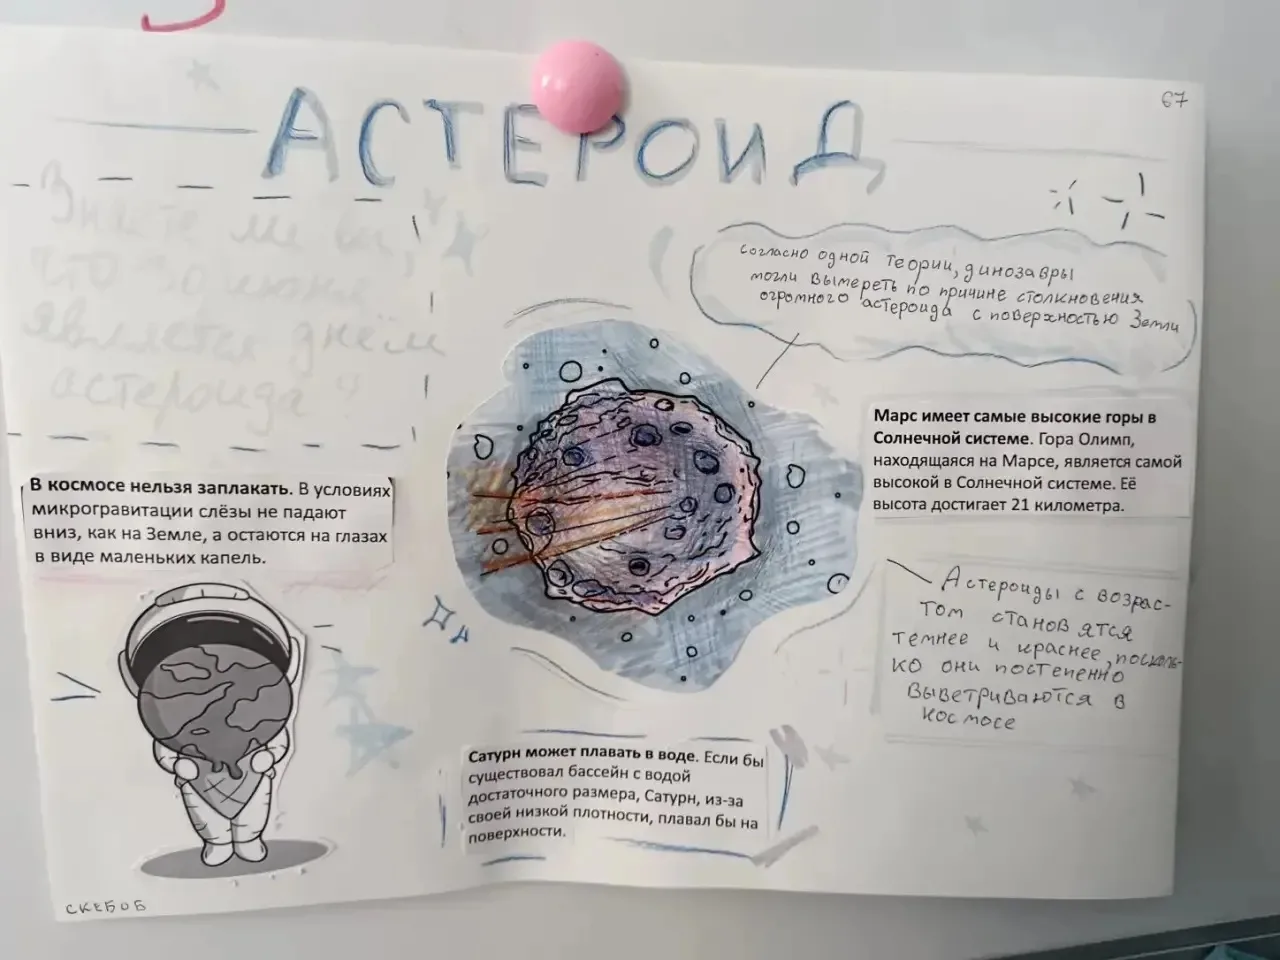 67
АСТЕРОИД
Знаете ли вы,
что 30 июня
является днём
астероида?
согласно одной теории, динозавры
могли вымереть по причине столкновения
огромного астероида с поверхностью Земли
Марс имеет самые высокие горы в
Солнечной системе. Гора Олимп,
находящаяся на Марсе, является самой
высокой в Солнечной системе. Её
высота достигает 21 километра.
В космосе нельзя заплакать. В условиях
микрогравитации слёзы не падают
вниз, как на Земле, а остаются на глазах
в виде маленьких капель.
Астероиды с возрас-
том становятся
темнее и краснее, посколь-
ко они постепенно
выветриваются в
космосе
Сатурн может плавать в воде. Если бы
существовал бассейн с водой
достаточного размера, Сатурн, из-за
своей низкой плотности, плавал бы на
поверхности.
СКЕБОБ